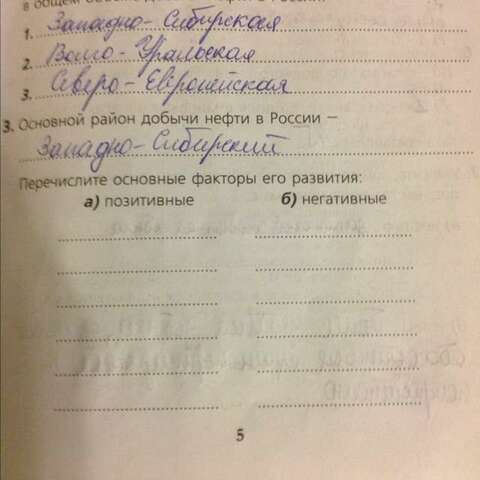 1. Западно-Сибирская
2. Волго-Уральская
3. Северо-Европейская
3. Основной район добычи нефти в России —
Западно-Сибирский
Перечислите основные факторы его развития:
а) позитивные б) негативные
5